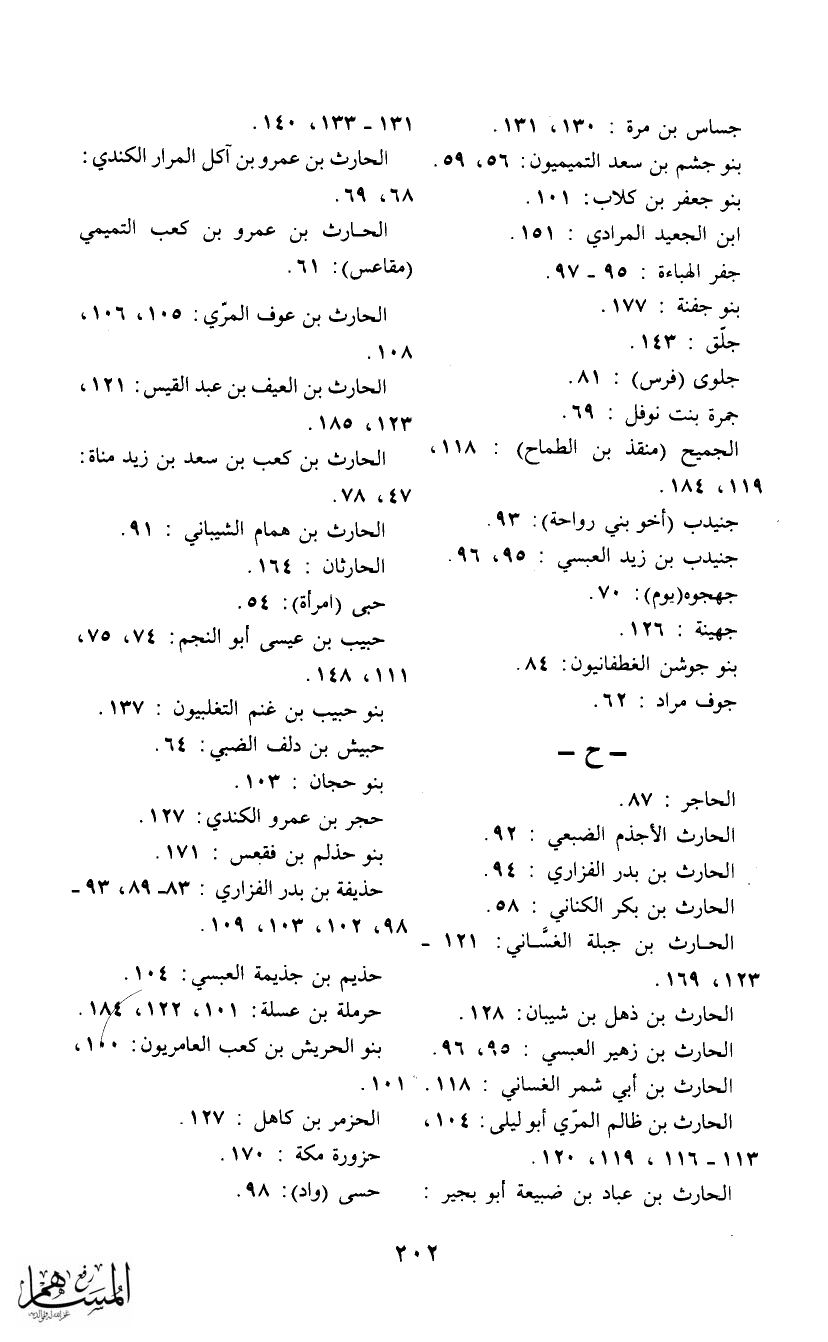 جساس بن مرة : ١٣٠، ١٣١.
بنو جشم بن سعد التميميون: ٥٦، ٥٩.
بنو جعفر بن كلاب: ١٠١.
ابن الجعيد المرادي : ١٥١.
جفر الهباءة : ٩٥ ـ ٩٧.
بنو جفنة : ١٧٧.
جلّق : ١٤٣.
جلوى (فرس) : ٨١.
جمرة بنت نوفل : ٦٩.
الجميح (منقذ بن الطماح) : ١١٨،
١١٩، ١٨٤.
جنيدب (أخو بني رواحة): ٩٣.
جنيدب بن زيد العبسي : ٩٥، ٩٦.
جهجوه(يوم): ٧٠.
جهينة : ١٢٦.
بنو جوشن الغطفانيون: ٨٤.
جوف مراد : ٦٢.
ـ ح ـ
الحاجر : ٨٧.
الحارث الأجذم الضبعي : ٩٢.
الحارث بن بدر الفزاري : ٩٤.
الحارث بن بكر الكناني : ٥٨.
الحـارث بن جبلة الغسَّـاني: ١٢١ ـ
١٢٣، ١٦٩.
الحارث بن ذهل بن شيبان: ١٢٨.
الحارث بن زهير العبسي : ٩٥، ٩٦.
الحارث بن أبي شمر الغساني : ١١٨.
الحارث بن ظالم المرّي أبو ليلى: ١٠٤،
١١٣ ـ ١١٦ ، ١١٩، ١٢٠.
الحارث بن عباد بن ضبيعة أبو بجير :
١٣١ ـ ١٣٣، ١٤٠.
الحارث بن عمرو بن آكل المرار الكندي:
٦٨، ٦٩.
الحـارث بن عمرو بن كعب التميمي
(مقاعس): ٦١.
الحارث بن عوف المرّي: ١٠٥، ١٠٦،
١٠٨.
الحارث بن العيف بن عبد القيس: ١٢١،
١٢٣، ١٨٥.
الحارث بن كعب بن سعد بن زيد مناة:
٤٧، ٧٨.
الحارث بن همام الشيباني : ٩١.
الحارثان : ١٦٤.
حبى (امرأة): ٥٤.
حبيب بن عيسى أبو النجم: ٧٤، ٧٥،
١١١، ١٤٨.
بنو حبيب بن غنم التغلبيون : ١٣٧.
حبيش بن دلف الضبي: ٦٤.
بنو حجان : ١٠٣.
حجر بن عمرو الكندي: ١٢٧.
بنو حذلم بن فقعس : ١٧١.
حذيفة بن بدر الفزاري : ٨٣ـ ٨٩، ٩٣ ـ
٩٨، ١٠٢، ١٠٣، ١٠٩.
حذيم بن جذيمة العبسي: ١٠٤.
حرملة بن عسلة: ١٠١، ١٢٢، ١٨٤.
بنو الحريش بن كعب العامريون: ١٠٠،
١٠١.
الحزمر بن كاهل : ١٢٧.
حزورة مكة : ١٧٠.
حسى (واد): ٩٨.
٢٠٢
رفع
المساهم